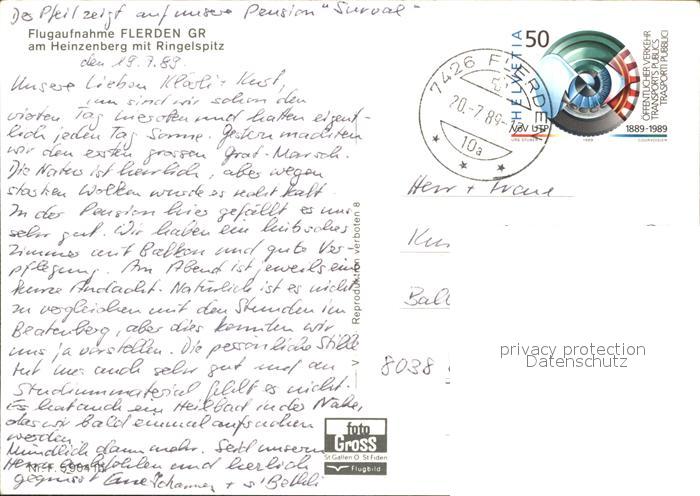 Der Pfeil zeigt auf unsere Pension "Surval"
Flugaufnahme FLERDEN GR
am Heinzenberg mit Ringelspitz
den 19.7.89.
Unsere Lieben
nun sind wir schon den
vierten Tag hier oben und hatten eigent-
lich jeden Tag Sonne. Gestern machten
wir den ersten grossen Grat-Marsch.
Die Natur ist herrlich, aber wegen
starken Wolken wurde es recht kalt.
In der Pension hier gefällt es uns
sehr gut. Wir haben ein hübsches
Zimmer mit Balkon und gute Ver-
pflegung. Am Abend ist jeweils eine
kurze Andacht. Natürlich ist es nicht
zu vergleichen mit den Stunden im
Beatenberg, aber dies konnten wir
uns ja vorstellen. Die persönliche Stille
tut uns auch sehr gut und an
Studiummaterial fehlt es nicht.
Es hat auch ein Heilbad in der Nähe,
das wir bald einmal aufsuchen
werden.
Mündlich dann mehr. Seid unserem
Herrn befohlen und herzlich
gegrüsst Eure
Nr. F. 5904
Reproduktion verboten 8
foto
GROSS
St Gallen O St Fiden
Flugbild
7426 FLERDEN
20.-7.89-
10a
HELVETIA 50
VöV UTP
1889-1989
ÖFFENTLICHER VERKEHR
TRANSPORTS PUBLICS
TRASPORTI PUBBLICI
1989
COURVOISIER
Herr + Frau
8038
privacy protection
Datenschutz